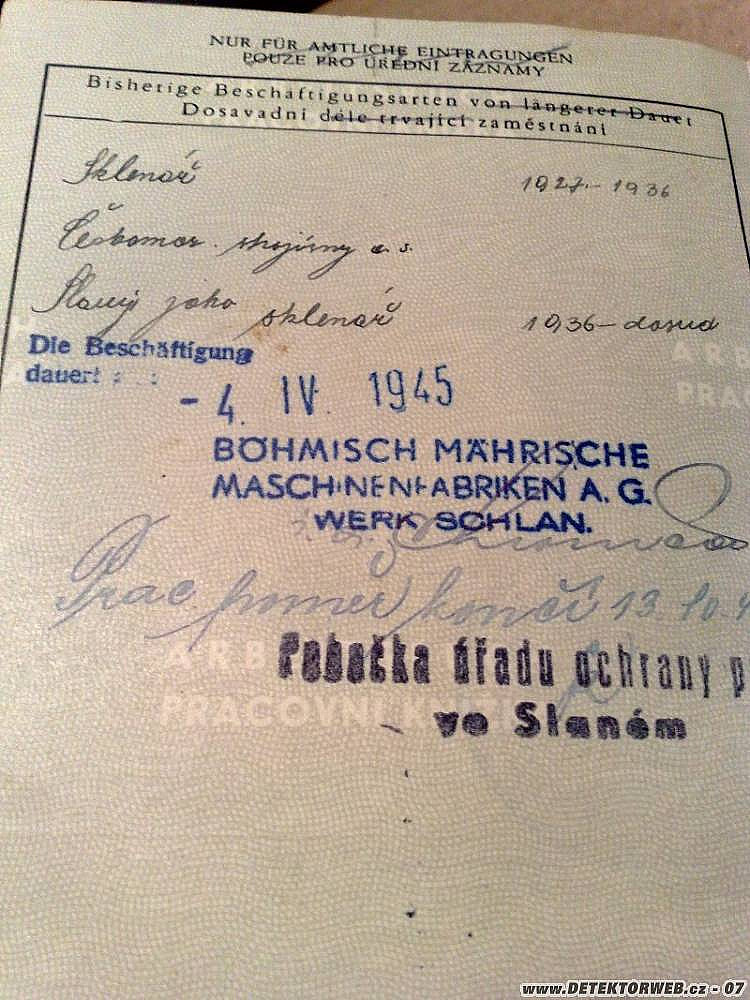 NUR FÜR AMTLICHE EINTRAGUNGEN
POUZE PRO ÚŘEDNÍ ZÁZNAMY
Bisherige Beschäftigungsarten von längerer Dauer
Dosavadní déle trvající zaměstnání
Sklenář 1927 - 1936
Českomor. strojírny a. s.
Slaný jako sklenář 1936 - dosud
Die Beschäftigung
dauert
- 4. IV. 1945
BÖHMISCH MÄHRISCHE
MASCHINENFABRIKEN A. G.
WERK SCHLAN.
Prac. poměr končí 13. 10.
Pobočka úřadu ochrany p
ve Slaném
ARB
PRAC
ARB
PRACOVNÍ K
www.DETEKTORWEB.cz - 07